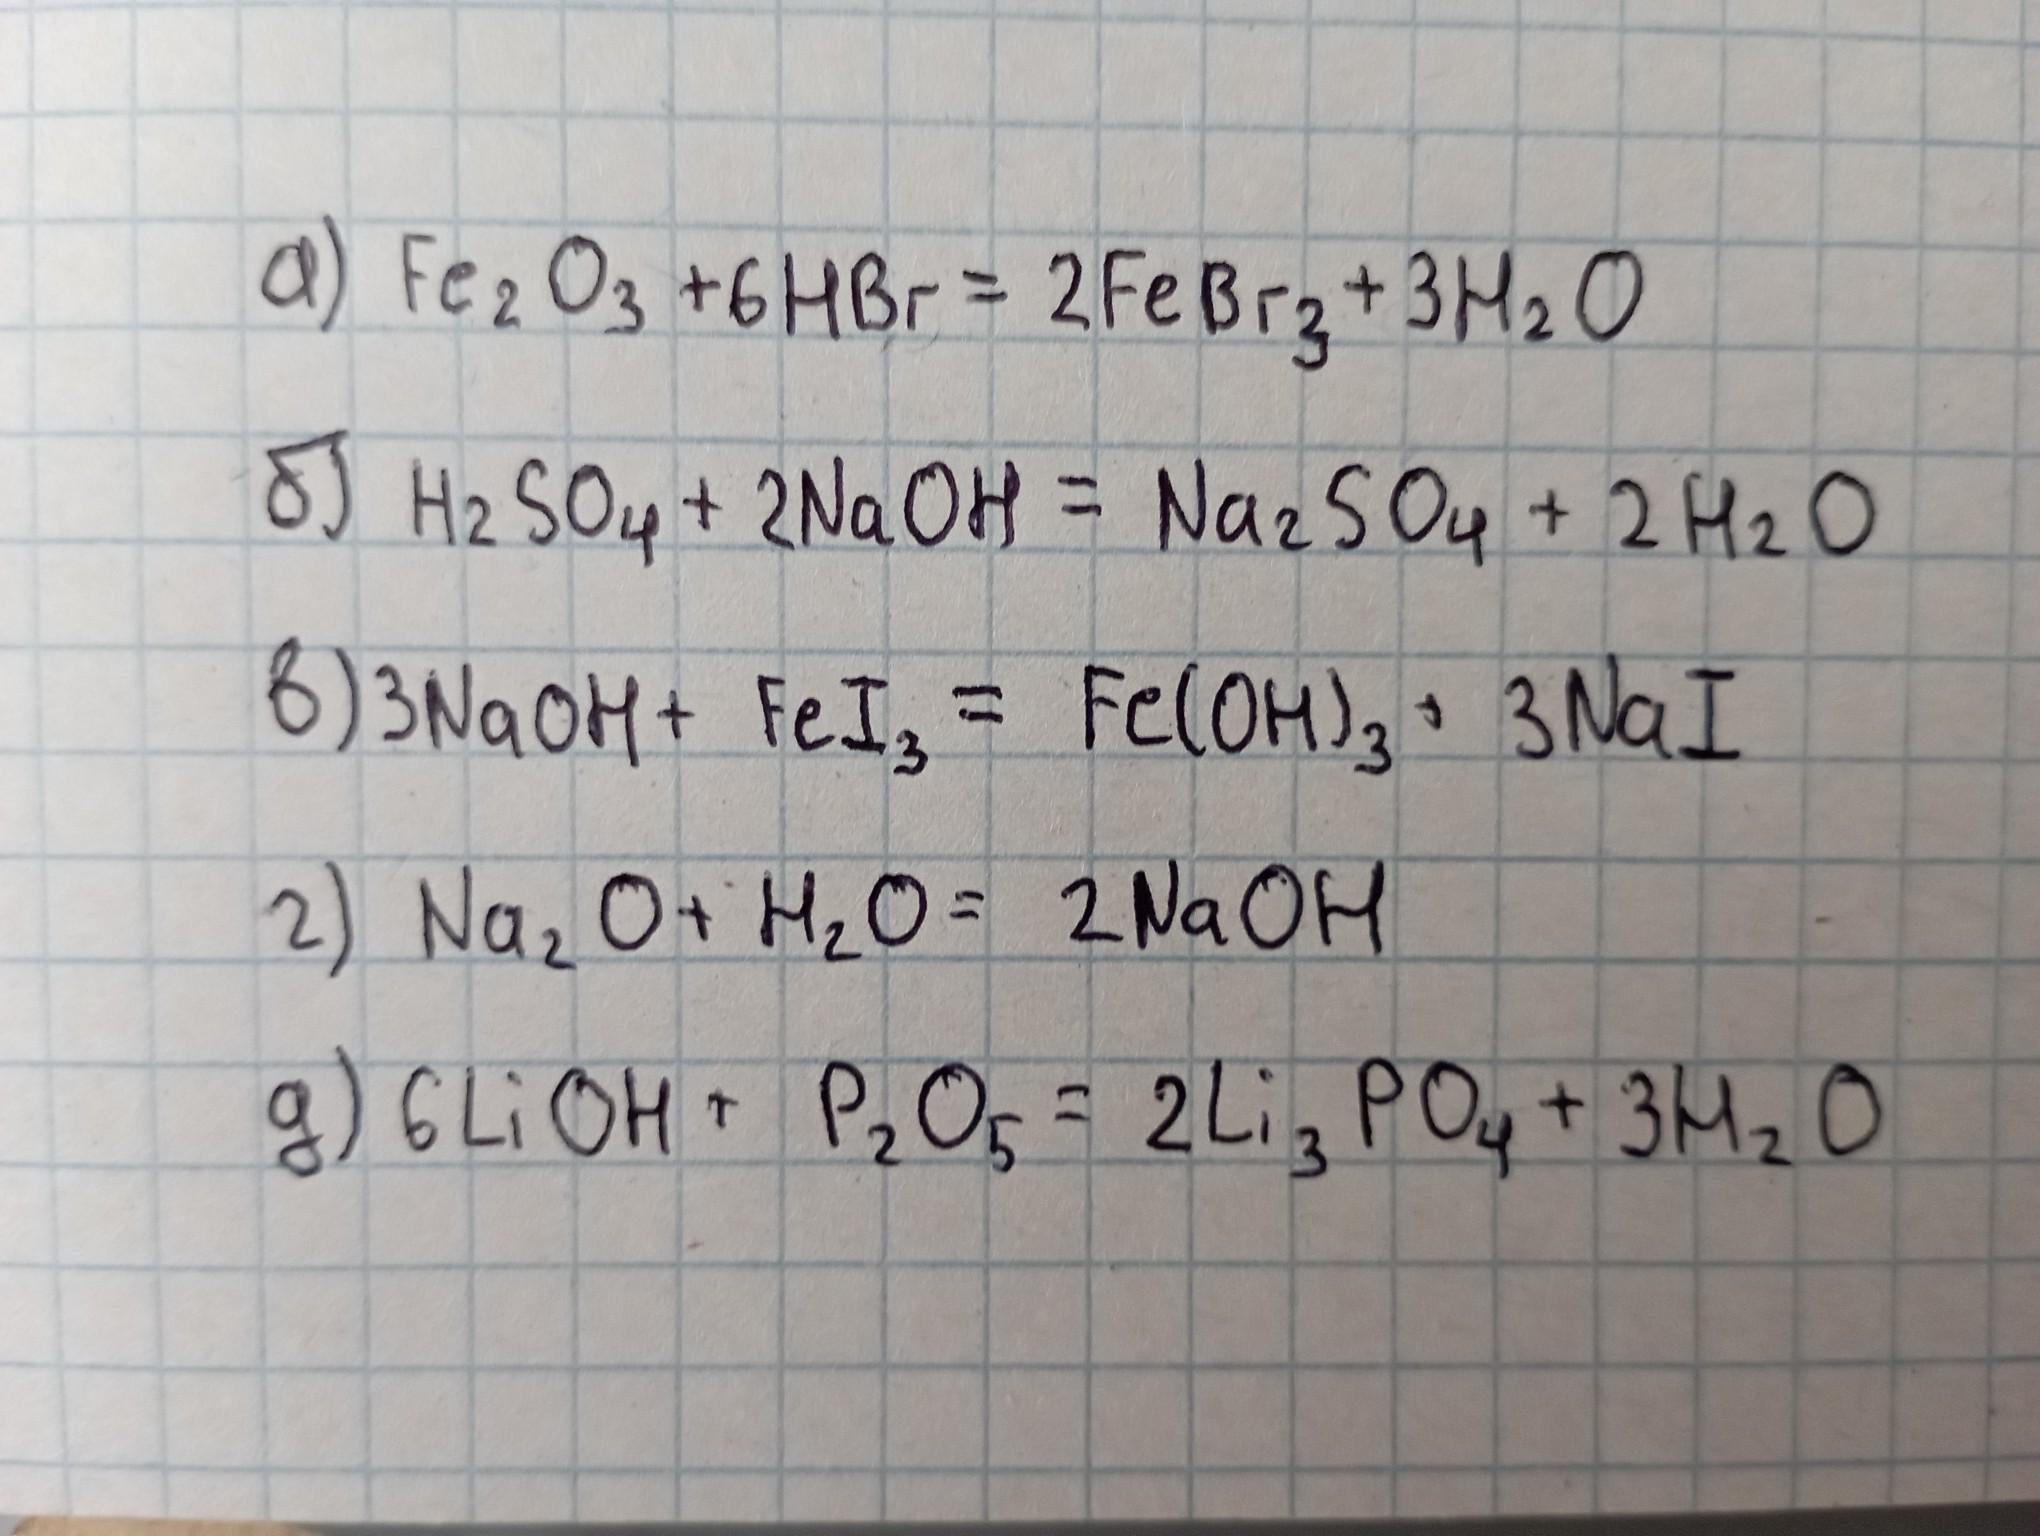 а) Fe₂O₃ + 6HBr = 2FeBr₃ + 3H₂O
б) H₂SO₄ + 2NaOH = Na₂SO₄ + 2H₂O
в) 3NaOH + FeI₃ = Fe(OH)₃ + 3NaI
г) Na₂O + H₂O = 2NaOH
д) 6LiOH + P₂O₅ = 2Li₃PO₄ + 3H₂O